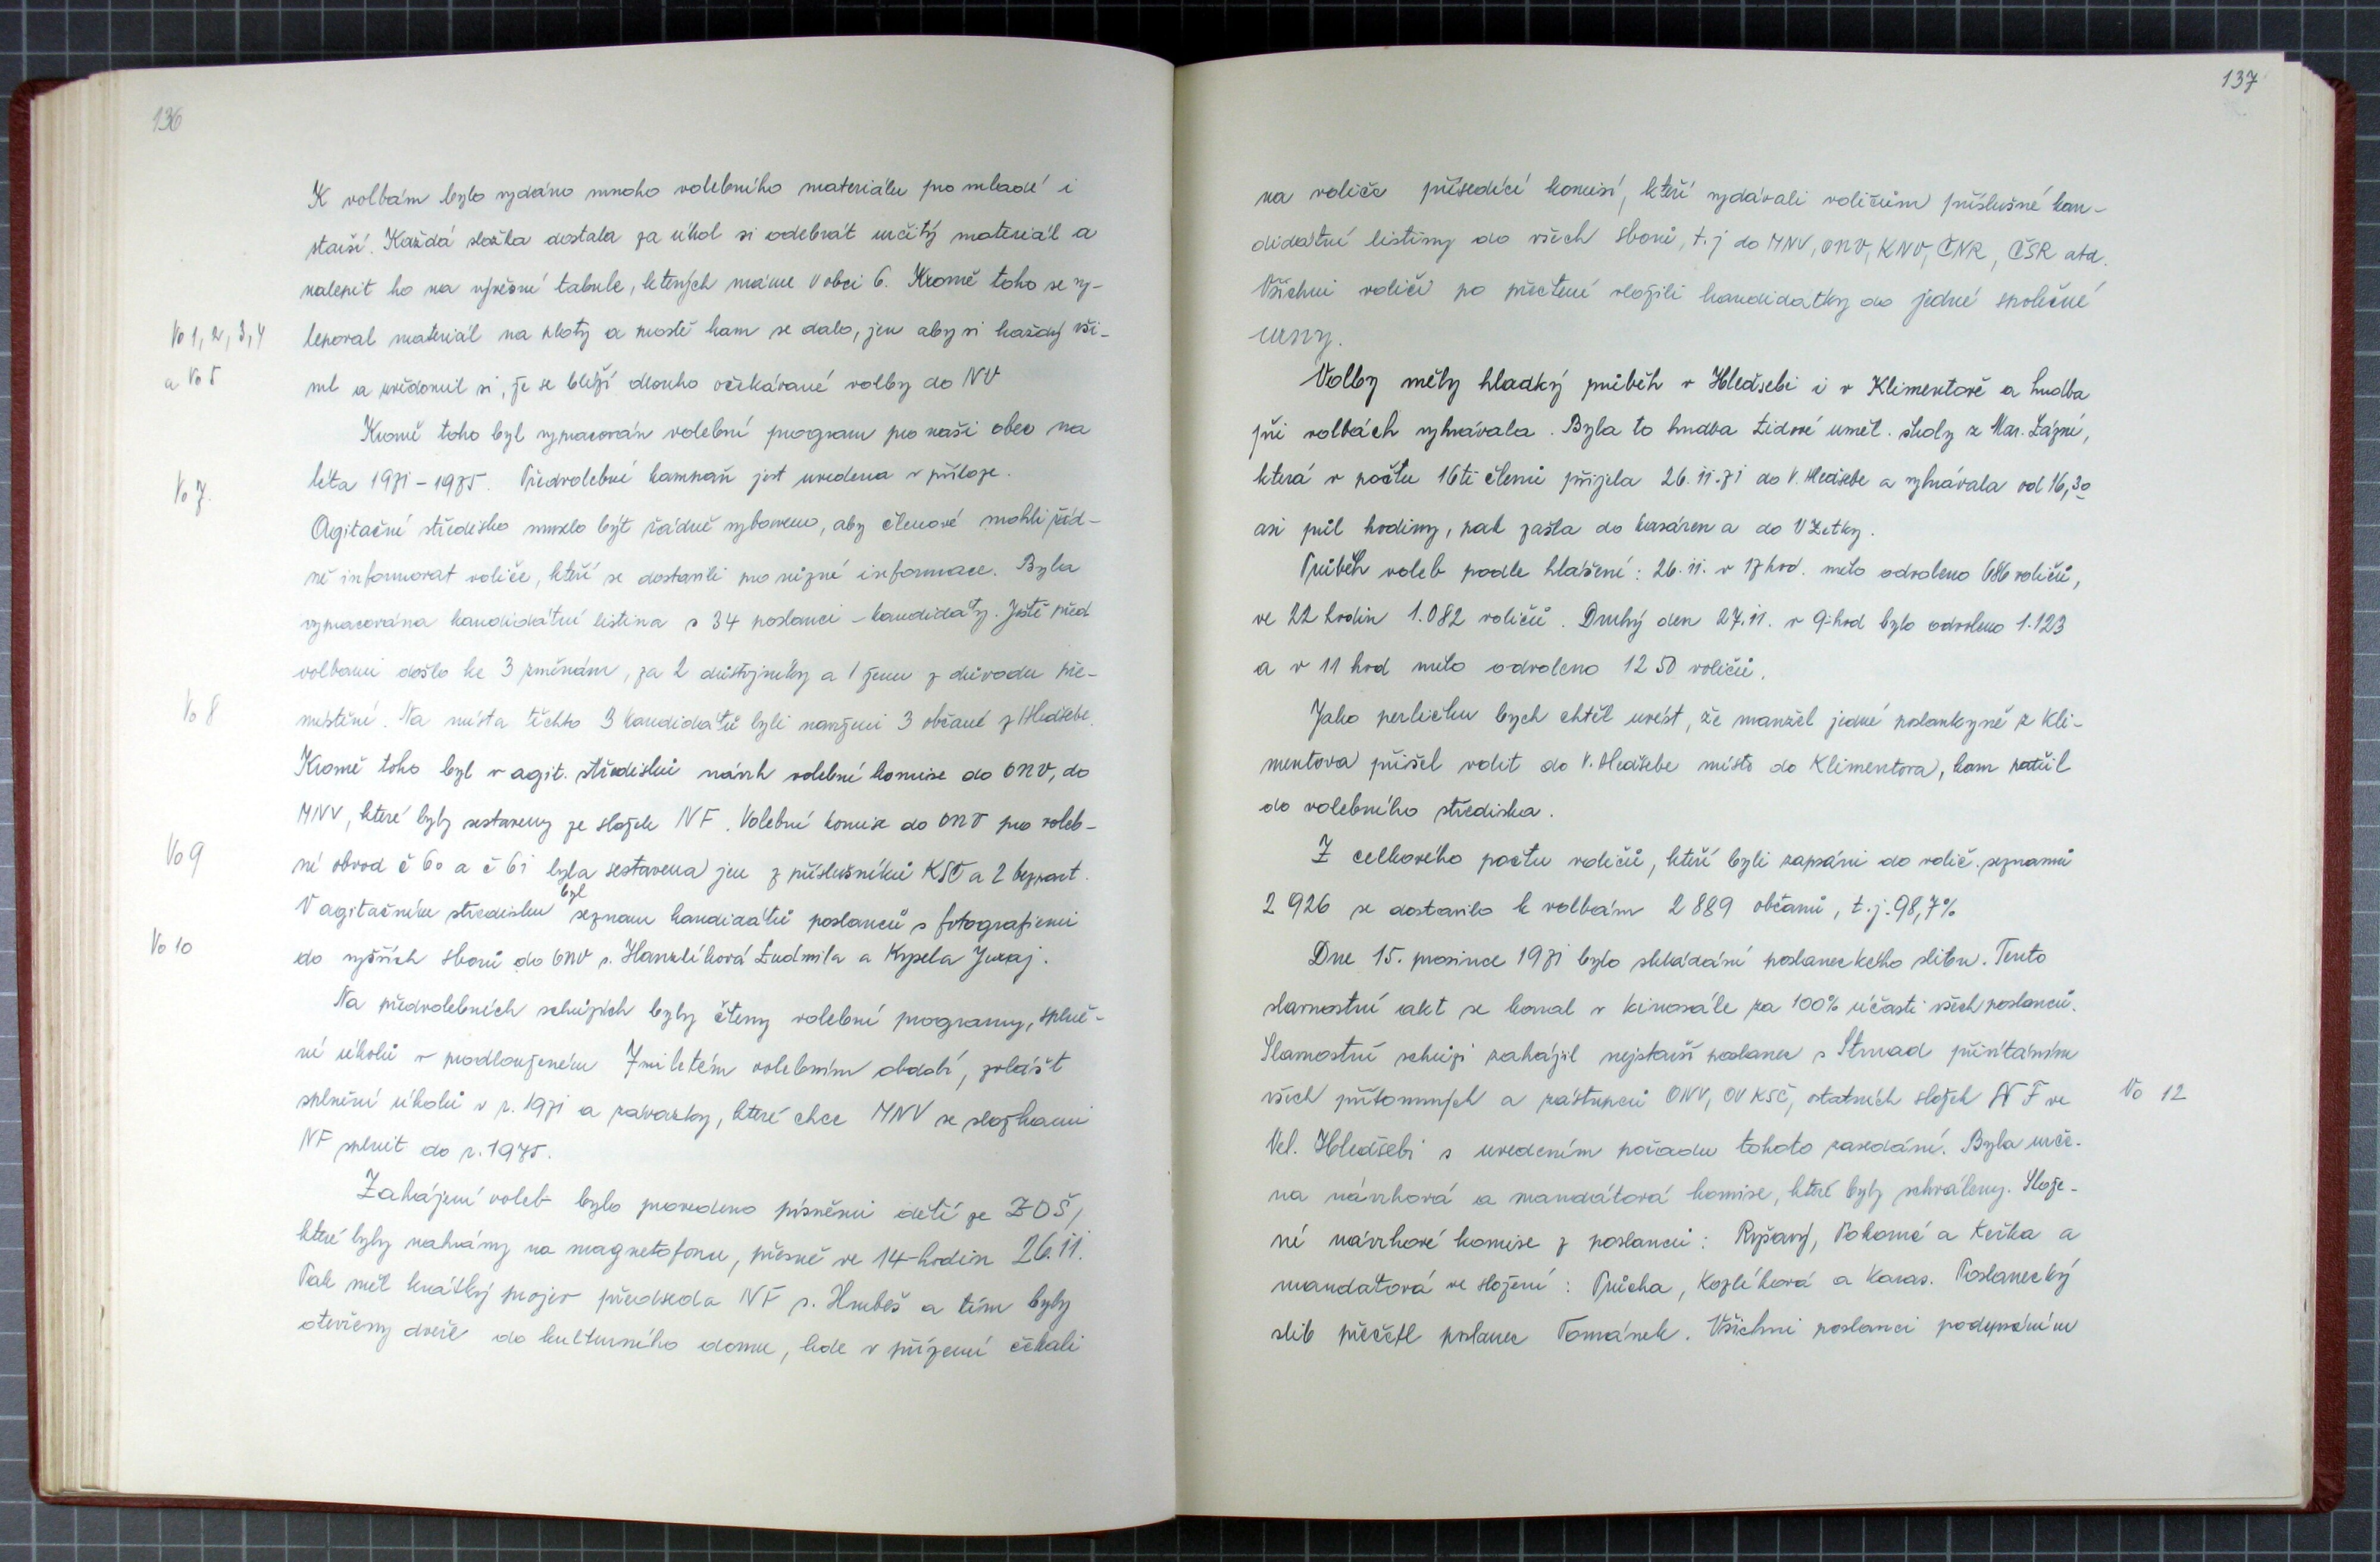 136
K volbám bylo vydáno mnoho volebního materiálu pro mladé i
starší. Každá složka dostala za úkol si odebrat určitý materiál a
nalepit ho na vývěsní tabule, kterých máme v obci 6. Kromě toho se vy-
Vo 1, 2, 3, 4
leporal materiál na ploty a prostě kam se dalo, jen aby si každý vši-
a Vo 5
ml a uvědomil si, že se blíží dlouho očekávané volby do NV
Kromě toho byl vypracován volební program pro naši obec na
léta 1971 - 1975. Předvolební kampaň jest uvedena v příloze.
Vo 7.
Agitační středisko muselo být řádně vybaveno, aby členové mohli řád-
ně informovat voliče, kteří se dostavili pro různé informace. Byla
vypracována kandidátní listina s 34 poslanci - kandidáty. Ještě před
volbami došlo ke 3 změnám, za 2 důstojníky a 1 ženu z důvodu pře-
Vo 8
místění. Na místa těchto 3 kandidátů byli navrženi 3 občané z Hledsebe.
Kromě toho byl v agit. středisku návrh volební komise do ONV, do
MNV, které byly sestaveny ze složek NF. Volební komise do ONV pro voleb-
Vo 9
ní obvod č 60 a č 61 byla sestavena jen z příslušníků KSČ a 2 bezpart.
V agitačním středisku byl seznam kandidátů poslanců s fotografiemi
Vo 10
do vyšších sborů do ONV s. Hanzlíková Ludmila a Kysela Juraj.
Na předvolebních schůzích byly čteny volební programy, splně-
ní úkolů v prodlouženém 7mi letém volebním období, zvlášt
splnění úkolů v r. 1971 a závazky, které chce MNV se složkami
NF splnit do r. 1975.
Zahájení voleb bylo provedeno písněmi dětí ze ZDŠ,
které byly nahrány na magnetofonu, přesně ve 14-hodin 26.11.
Pak měl krátký projev předseda NF s. Hrubeš a tím byly
otevřeny dveře do kulturního domu, kde v přízemí čekali
137
na voliče přísedící komisí, kteří vydávali voličům příslušné kan-
didátní listiny do všech sborů, t.j do MNV, ONV, KNV, ČNR, ČSR atd.
Všichni voliči po přečtení vložili kandidátky do jedné společné
urny.
Volby měly hladký průběh v Hledsebi i v Klimentově a hudba
při volbách vyhrávala. Byla to hudba Lidové uměl. školy z Mar. Lázní,
která v počtu 16ti členů přijela 26.11.71 do V. Hledsebe a vyhrávala od 16,30
asi půl hodiny, pak zašla do kasáren a do VZetky.
Průběh voleb podle hlášení: 26.11. v 17 hod. mělo odvoleno 686 voličů,
ve 22 hodin 1.082 voličů. Druhý den 27.11. v 9-hod bylo odvoleno 1.123
a v 11 hod mělo odvoleno 1250 voličů.
Jako perličku bych chtěl uvést, že manžel jedné poslankyně z Kli-
mentova přišel volit do V. Hledsebe místo do Klimentova, kam patřil
do volebního střediska.
Z celkového počtu voličů, kteří byli zapsáni do volič. seznamů
2 926 se dostavilo k volbám 2 889 občanů, t.j. 98,7%
Dne 15. prosince 1971 bylo skládání poslaneckého slibu. Tento
slavnostní akt se konal v kinosále za 100% účasti všech poslanců.
Slavnostní schůzi zahájil nejstarší poslanec s Strnad přivítáním
všech přítomných a zástupců ONV, OV KSČ, ostatních složek NF ve
Vo 12
Vel. Hledsebi s uvedením pořadu tohoto zasedání. Byla urče-
na návrhová a mandátová komise, které byly schváleny. Slože-
ní návrhové komise z poslanců: Ryšavý, Pokorné a Keřka a
mandátová ve složení: Průcha, Kozlíková a Karas. Poslanecký
slib přečetl poslanec Tománek. Všichni poslanci podepsáním